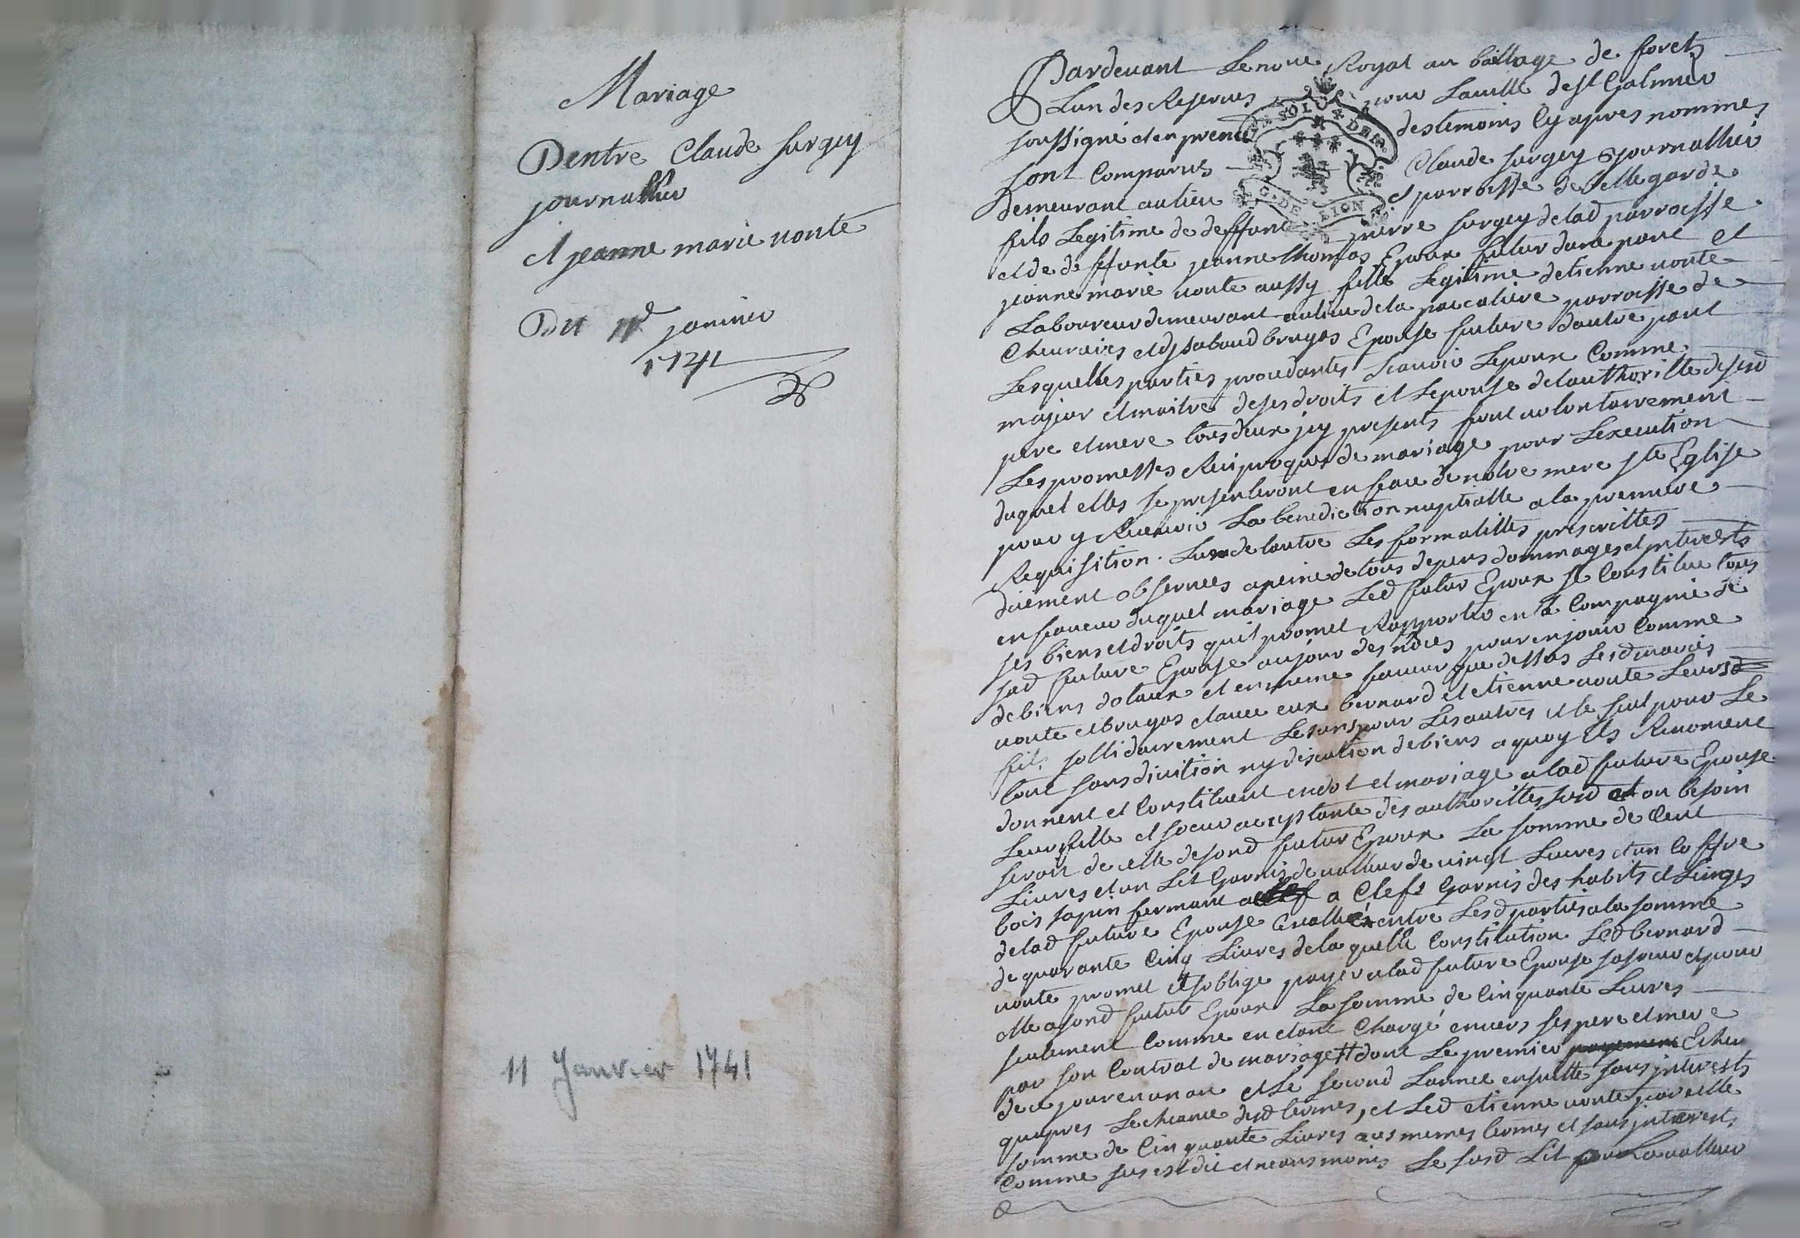 Mariage
Dentre Claude furgey
journallier
et jeanne marie vonte
Du 11e janvier
1741
11 Janvier 1741
Pardevant Le nore Royal au balliage de forets
Lun des Reserves pour Laville de st Galmier
soussigné et en presence destemoins Cy apres nommes
sont Comparus Claude furgey journallier
demeurant au lieu et parroisse de Bellegarde
SOL DE
G. DE LION
fils Legitime de deffunt pierre furgey delad parroisse
et de deffunte jeanne thomas Epoux futur dune part et
jeanne marie vonte aussy fille Legitime detienne vonte
Laboureur demeurant au lieu de la parroisse de
Chevrieres et dysabaud bruyas Epouse future dautre part
Lesquelles parties procedantes scavoir Lepoux Comme
majeur et maitre de ses droits et Lepouse de lauthoritte de sesd
pere et mere tous deux jcy presents font volontairement
Les promesses Reciproques de mariage pour Lexecution
duquel elles se presenteront en face de notre mere ste Eglise
pour y Recevoir La benediction nuptialle a la premiere
Requisition Lun de lautre Les formalittes prescrittes
duement observees a peine de tous depens dommages et interests
en faveur duquel mariage Led futur Epoux se Constitue tous
ses biens et droits quil promet Rapporter en la Compagnie de
sad future Epouse au jour des nôces pour en jouir Comme
de biens dotaux et en meme faveur que dessus Lesd maries
vonte et bruyas et avec eux bernard et etienne vonte Leursd
fils sollidairement Les uns pour Les autres et le seul pour Le
tout sans division ny discution de biens a quoy ils Renoncent
donnent et Constituent en dot et mariage alad future Epouse
Leur fille et soeur acceptante des authorittes susd et au besoin
seroit de celle de sond futur Epoux La somme de Cent
Livres et un Lit Garnis de valleur de vingt Livres et un Coffre
bois sapin fermant a Clefs Garnis des habits et Linges
delad future Epouse Evallué entre Lesd parties a la somme
de quarante Cinq Livres de laquelle Constitution Led bernard
vonte promet et soblige payer alad future Epouse sa soeur et pour
elle a sond futur Epoux La somme de Cinquante Livres
seulement Comme en etant Chargé envers ses pere et mere
par son Contrat de mariage dont Le premier Echeu
de ce jour en un an et Le second Lannee ensuitte sans interests
quapres Lecheance desd termes, et Led etienne vonte pareille
somme de Cinquante Livres aux memes termes et sans interests
Comme sus est dit et neanmoins Le susd Lit La valleur